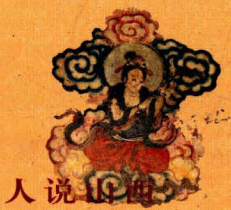 人说山西